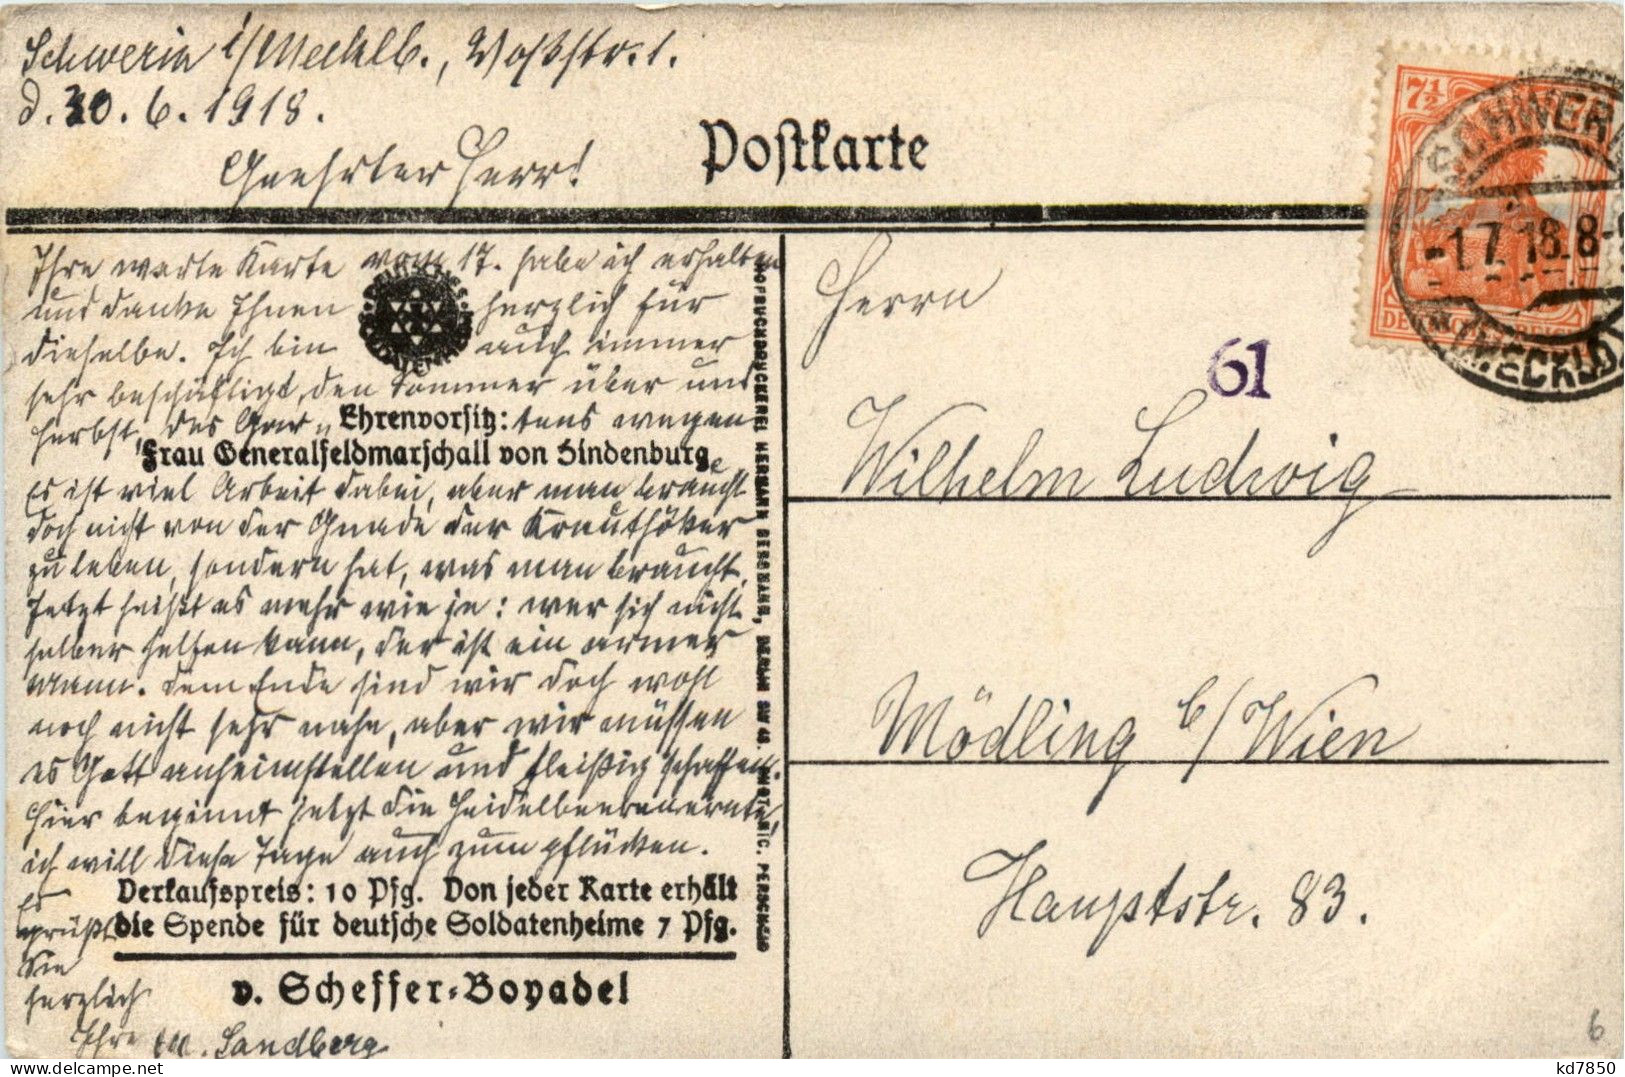 Schwerin i/Mecklb., Voßstr. 1.
d. 30. 6. 1918.
Geehrter Herr!
Postkarte
Ihre werte Karte vom 17. habe ich erhalten
und danke Ihnen herzlich für
dieselbe. Ich bin auch immer
sehr beschäftigt, den Sommer über und
Herbst, des Gar- tens wegen
Ehrenvorsitz:
Frau Generalfeldmarschall von Hindenburg
Es ist viel Arbeit dabei, aber man braucht
doch nicht von der Gnade der Krauthöker
zu leben, sondern hat, was man braucht.
Jetzt heißt es mehr wie je: wer sich nicht
selber helfen kann, der ist ein armer
Mann. Dem Ende sind wir doch wohl
noch nicht sehr nahe, aber wir müssen
es Gott anheimstellen und fleißig schaffen.
Hier beginnt jetzt die Heidelbeerenernte,
ich will diese Tage auch zum pflücken.
Es
grüßt
Sie
herzlich
Ihre M. Sandberg
Verkaufspreis: 10 Pfg. Von jeder Karte erhält
die Spende für deutsche Soldatenheime 7 Pfg.
v. Scheffer-Boyadel
HOFBUCHDRUCKEREI HERMANN BERGMANN, BERLIN SW 48. PHOT. NIC. PERSCHEID
7½
DEUTSCHES REICH
SCHWERIN
-1.7.18.8-
(MECKLB)
61
Herrn
Wilhelm Ludwig
Mödling b/Wien
Hauptstr. 83.
6
kd7850